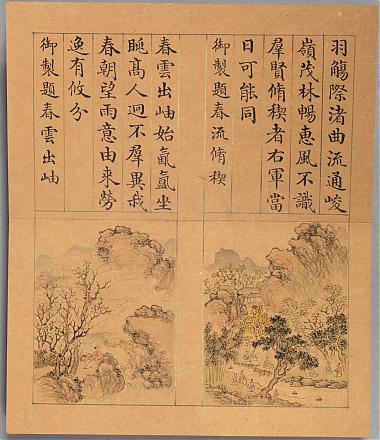 羽觴際渚曲流通峻
嶺茂林暢惠風不識
羣賢脩稧者右軍當
日可能同
御製題春流脩稧
春雲出岫始氤氳坐
眺髙人迥不羣異我
春朝望雨意由來勞
逸有攸分
御製題春雲出岫